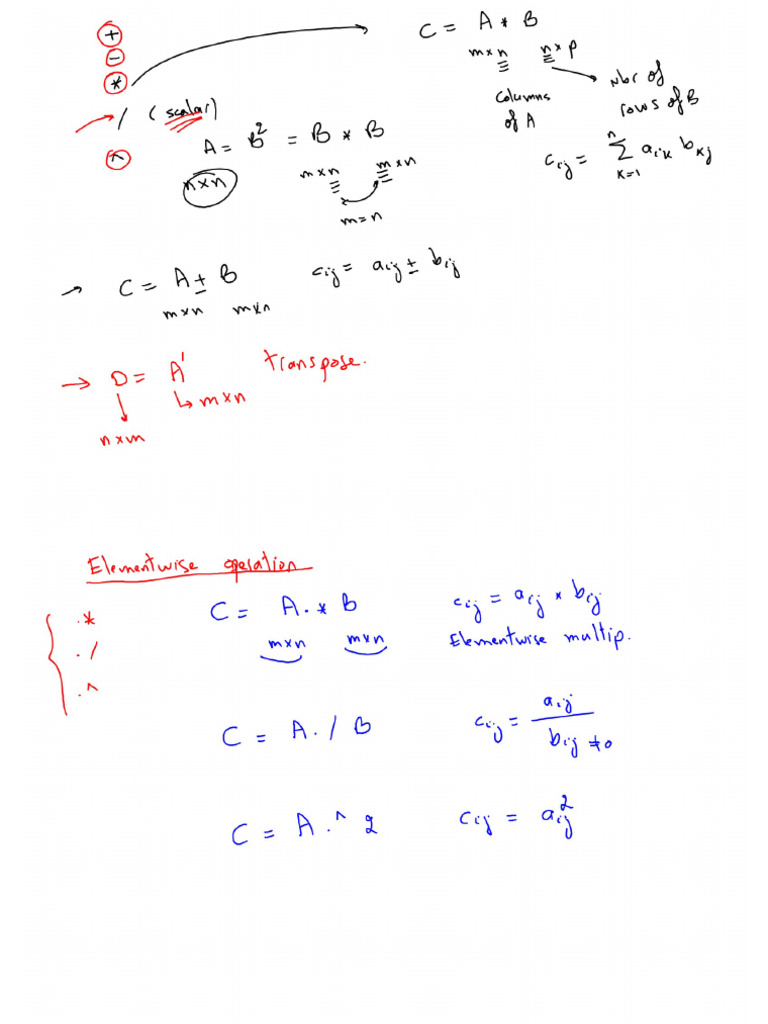 +
-
*
/ (scalar)
^
C = A * B
m×n n×p
columns of A
Nbr of rows of B
c_ij = Σ_{k=1}^{n} a_ik b_kj
A = B² = B * B
n×n m×n m×n
m=n
→ C = A ± B c_ij = a_ij ± b_ij
m×n m×n
→ D = A' transpose.
↳ m×n
n×m
Elementwise operation
.*
./
.^
C = A .* B c_ij = a_ij * b_ij
m×n m×n Elementwise multip.
C = A ./ B c_ij = a_ij / b_ij ≠0
C = A .^ 2 c_ij = a_ij²